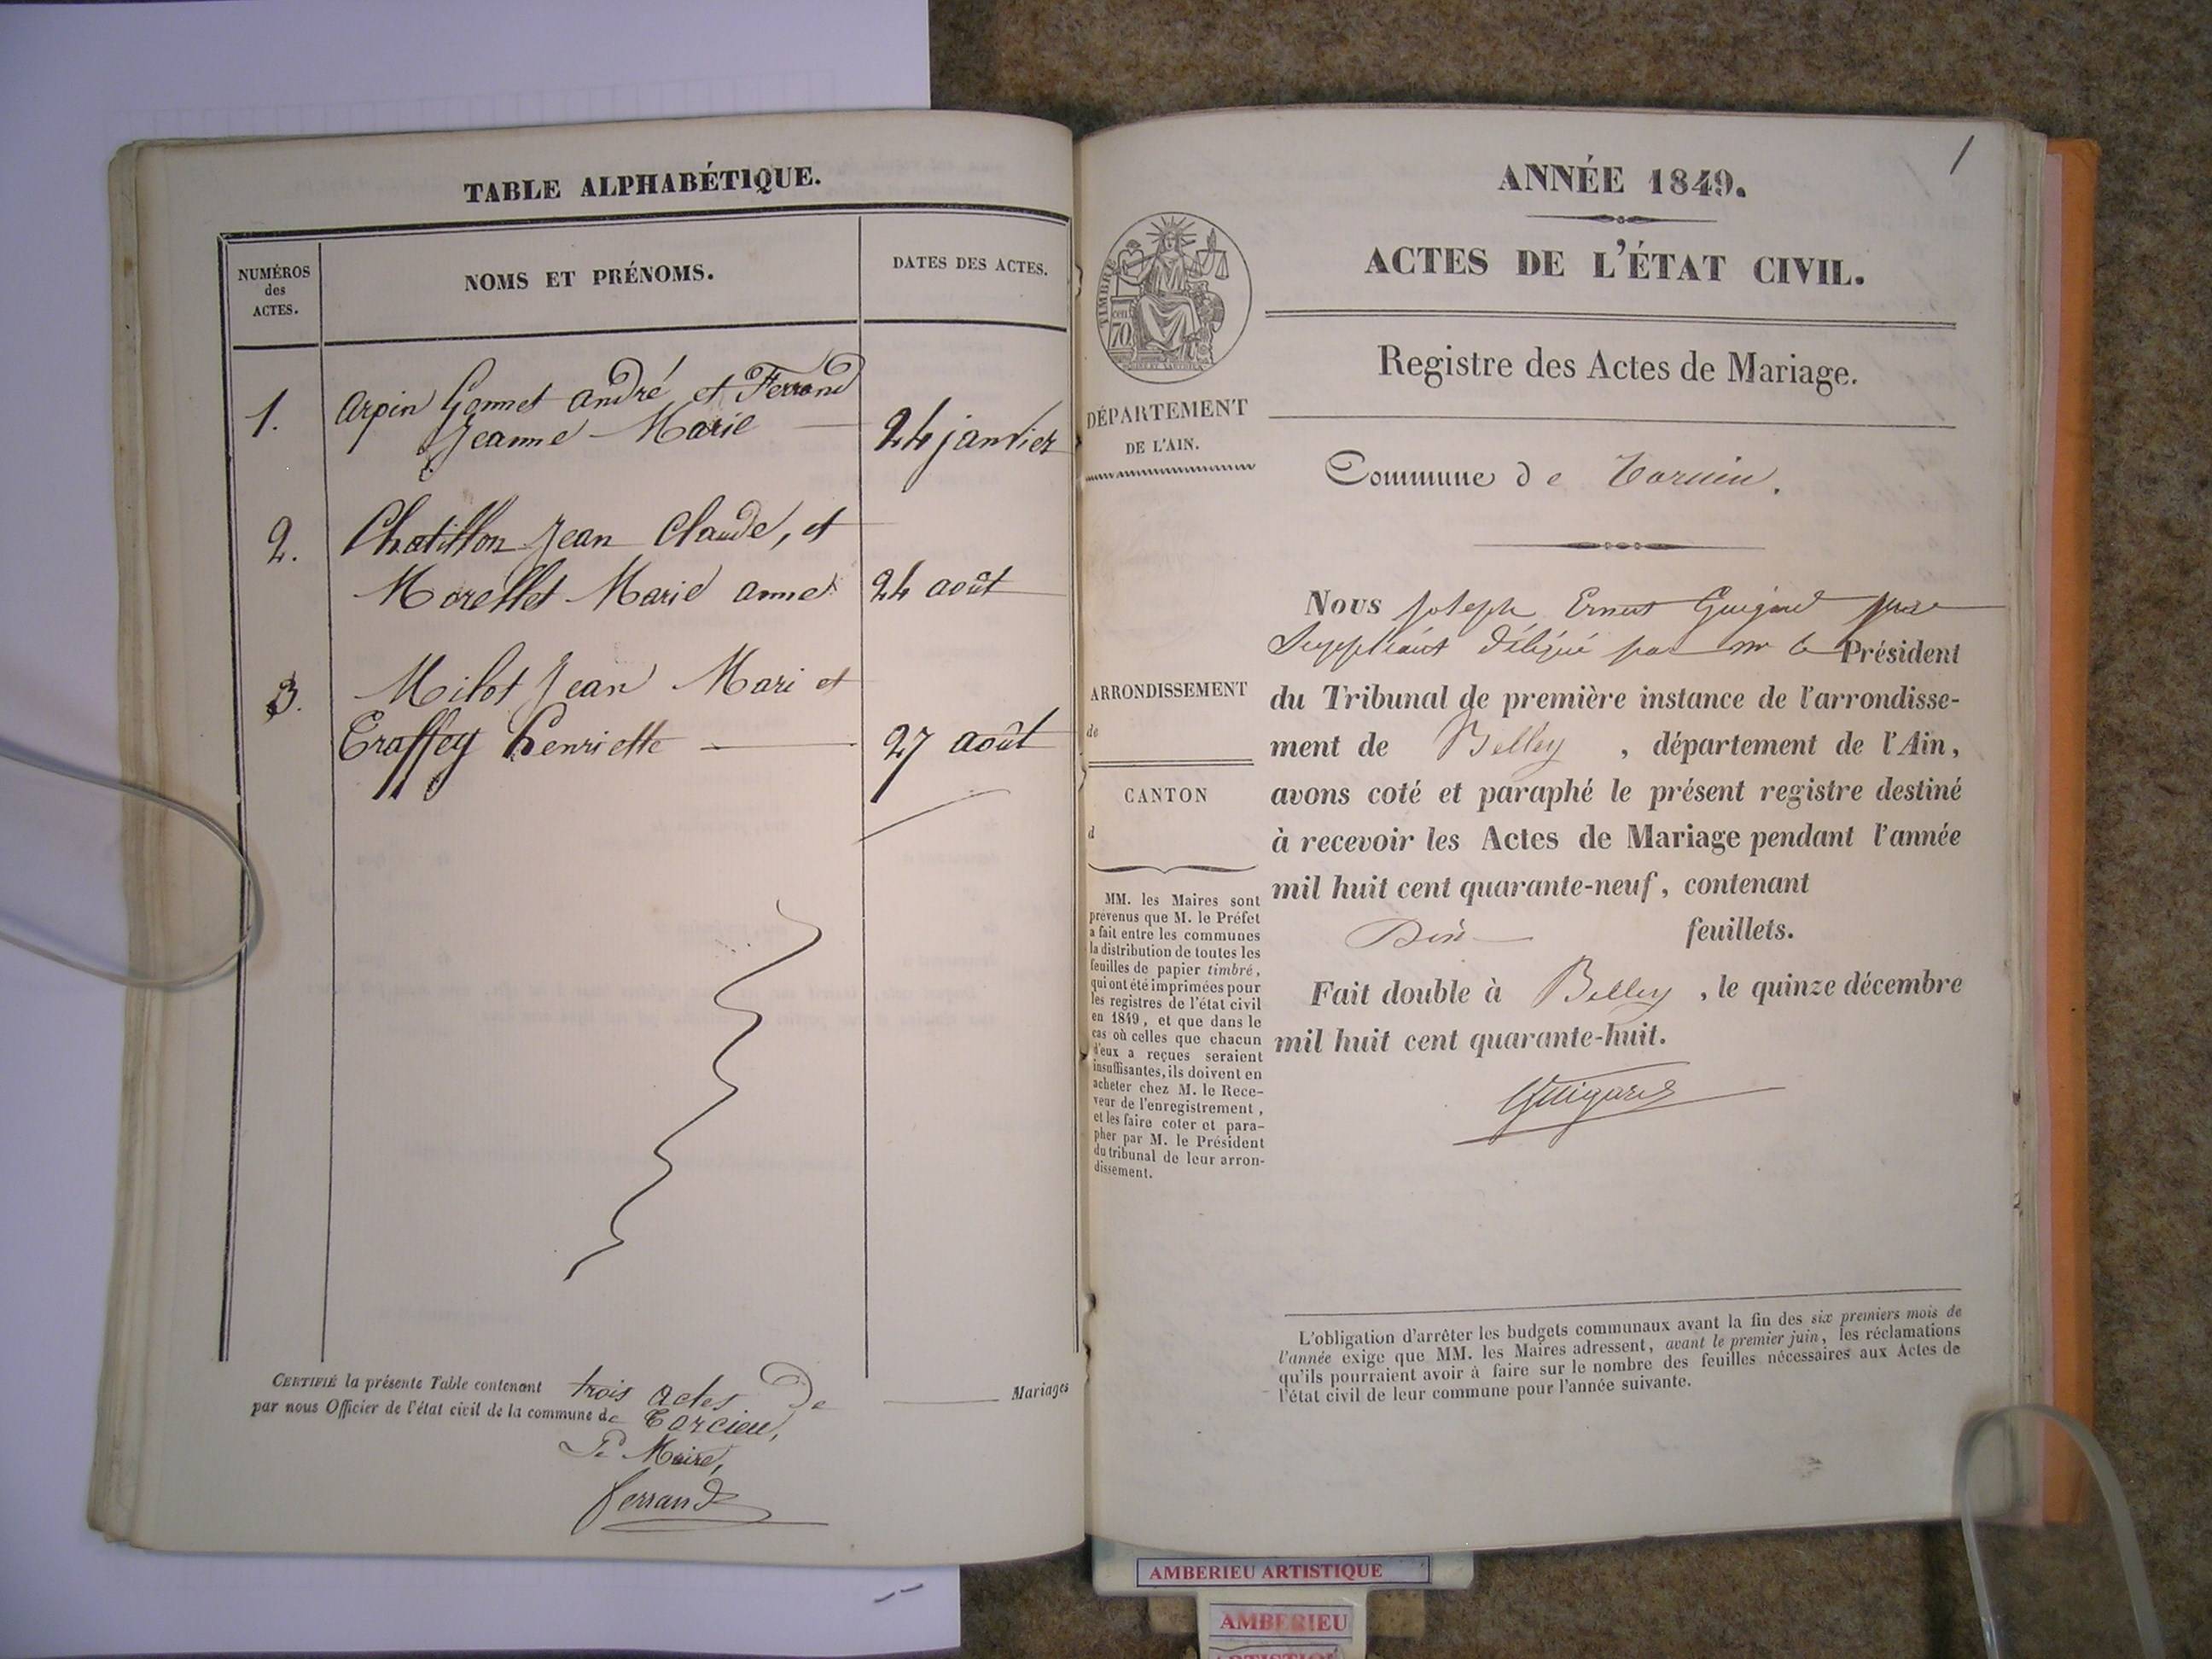 TABLE ALPHABÉTIQUE.
NUMÉROS
des
ACTES.
NOMS ET PRÉNOMS.
DATES DES ACTES.
1.
Arpin Gonnet andré et Ferrand
Jeanne Marie
24 janvier
2.
Chatillon Jean Claude, et
Morellet Marie anne
24 août
3.
Milot Jean Mari et
Traffey henriette
27 août
CERTIFIÉ la présente Table contenant trois actes De Mariages
par nous Officier de l'état civil de la commune de Torcieu,
Le Maire,
ferrand
1
ANNÉE 1849.
ACTES DE L'ÉTAT CIVIL.
TIMBRE
cen.
70
Registre des Actes de Mariage.
DÉPARTEMENT
DE L'AIN.
Commune de Torcieu.
Nous Joseph Ernest Guigard juge
Suppléant délégué par mr le Président
du Tribunal de première instance de l'arrondisse-
ment de Belley, département de l'Ain,
avons coté et paraphé le présent registre destiné
à recevoir les Actes de Mariage pendant l'année
mil huit cent quarante-neuf, contenant
feuillets.
Fait double à Belley, le quinze décembre
mil huit cent quarante-huit.
Guigard
ARRONDISSEMENT
de
CANTON
d
MM. les Maires sont
prévenus que M. le Préfet
a fait entre les communes
la distribution de toutes les
feuilles de papier timbré,
qui ont été imprimées pour
les registres de l'état civil
en 1849, et que dans le
cas où celles que chacun
d'eux a reçues seraient
insuffisantes, ils doivent en
acheter chez M. le Rece-
veur de l'enregistrement,
et les faire coter et para-
pher par M. le Président
du tribunal de leur arron-
dissement.
L'obligation d'arrêter les budgets communaux avant la fin des six premiers mois de
l'année exige que MM. les Maires adressent, avant le premier juin, les réclamations
qu'ils pourraient avoir à faire sur le nombre des feuilles nécessaires aux Actes de
l'état civil de leur commune pour l'année suivante.
AMBERIEU ARTISTIQUE
AMBERIEU
ARTISTIQUE